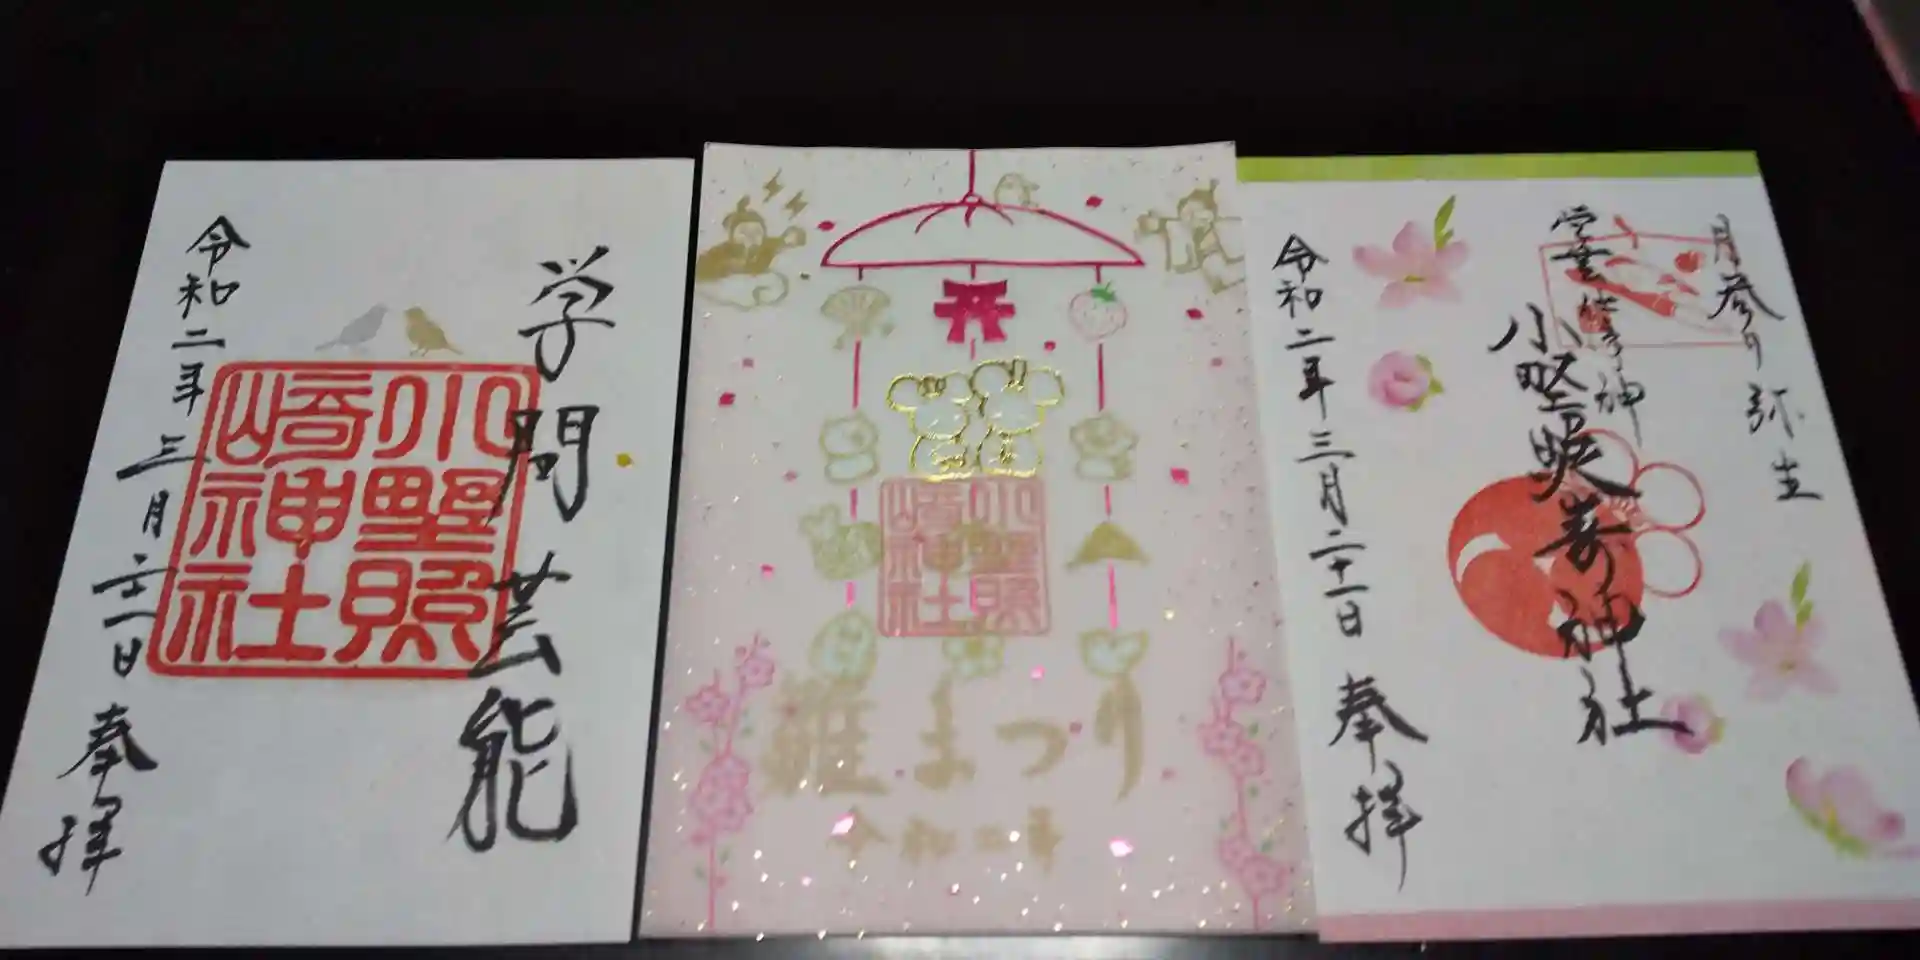 学問芸能
小野照
崎神社
令和二年三月二十一日
奉拝
小野照
崎神社
雛まつり
令和二年
月参り 弥生
小野照崎神社
令和二年三月二十一日
奉拝